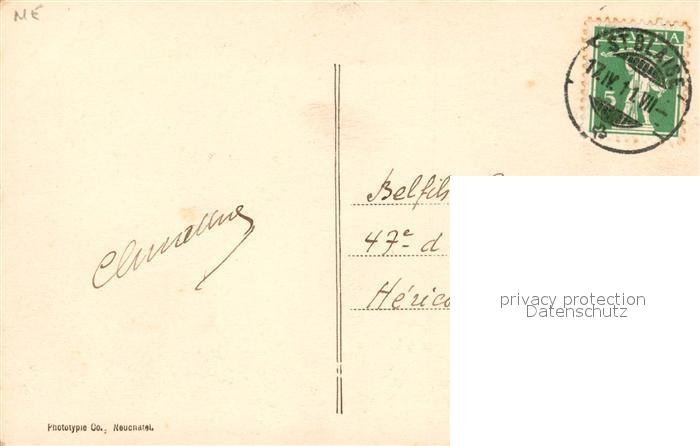 NE
HELVETIA
ST. BLAISE
17.IV.11.VII—
5
Belfils
47e d
Hérico
privacy protection
Datenschutz
Phototypie Co., Neuchatel.